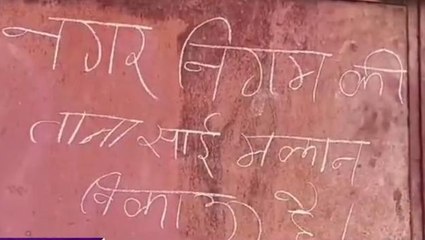 नगर निगम की
ताना साई मकान
बिकाऊ है।